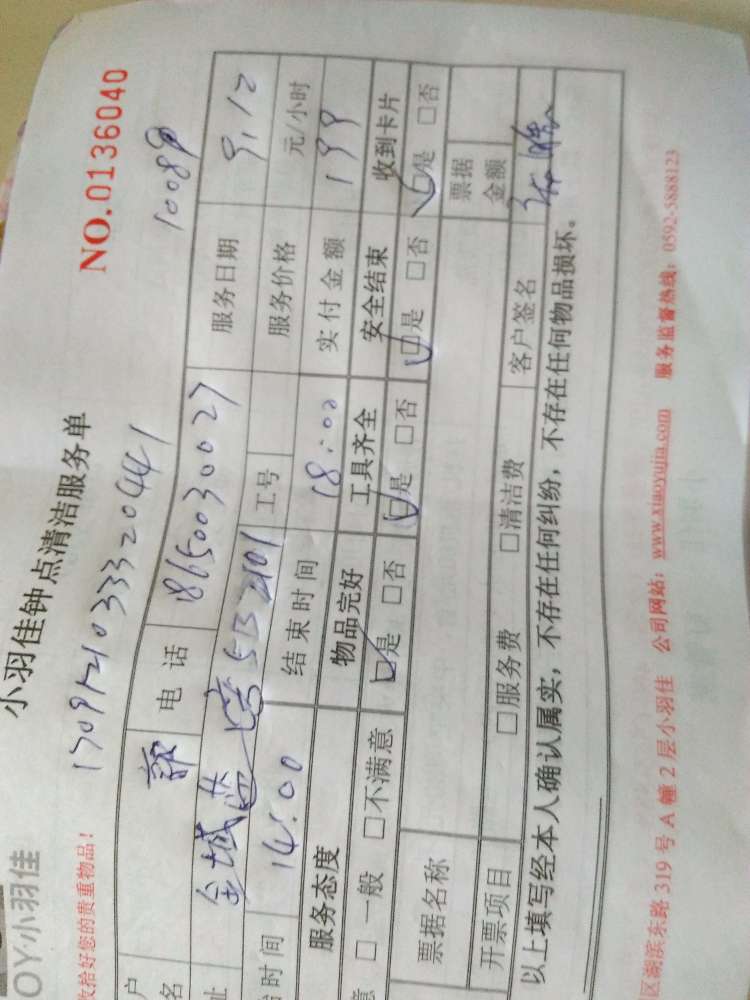 OY·小羽佳
小羽佳钟点清洁服务单
NO.0136040
收拾好您的贵重物品！
10089
户
名
郭
电话
18650030027
服务日期
9.12
址
工号
服务价格
元/小时
始时间
14:00
结束时间
18:00
实付金额
199
服务态度
物品完好
工具齐全
安全结束
收到卡片
意 □一般 □不满意
□是 □否
□是 □否
□是 □否
□是 □否
票据名称
票据
金额
开票项目
□服务费 □清洁费
客户签名
以上填写经本人确认属实，不存在任何纠纷，不存在任何物品损坏。
区湖滨东路 319 号 A 幢 2 层小羽佳 公司网站：www.xiaoyujia.com 服务监督热线：0592-5888123